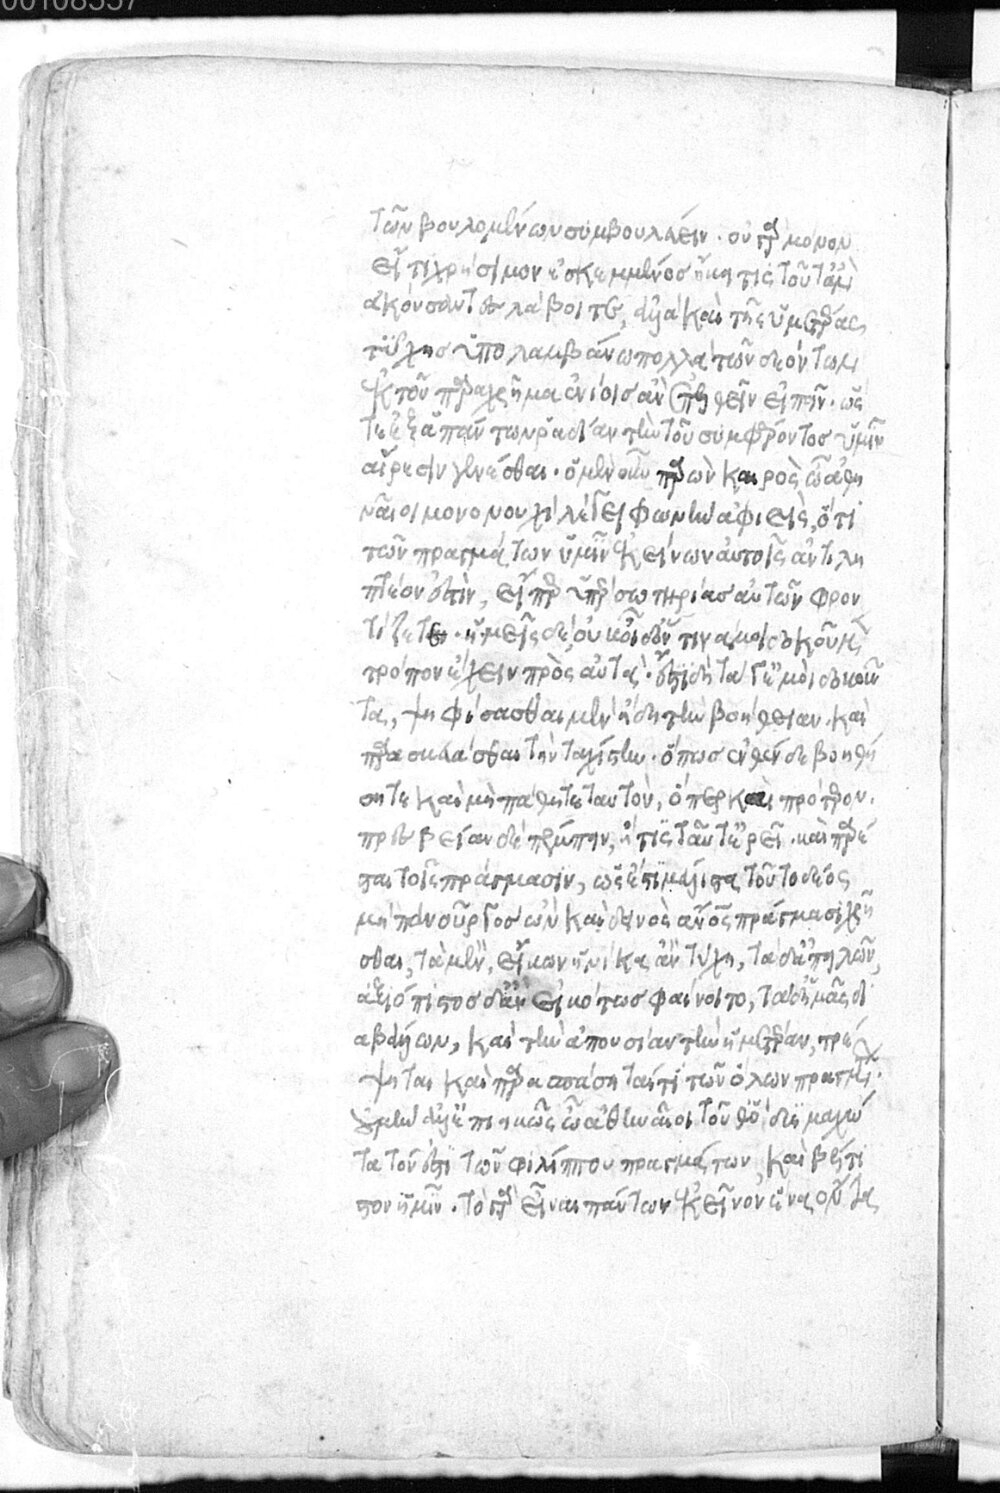 00108337
τῶν βουλομένων συμβουλεύειν. οὐ γὰρ μόνον
εἴ τι χρήσιμον ἐσκεμμένος ἥκει τις τοῦτ' ἂν
ἀκούσαντες λάβοιτε, ἀλλὰ καὶ τῆς ὑμετέρας
τύχης ὑπολαμβάνω πολλὰ τῶν δεόντων
ἐκ τοῦ παραχρῆμα ἐνίοις ἂν ἐπελθεῖν εἰπεῖν. ὥς
τε ἐξ ἁπάντων ῥαδίαν τὴν τοῦ συμφέροντος ὑμῖν
αἵρεσιν γενέσθαι. ὁ μὲν οὖν παρὼν καιρὸς ὦ ἀθη
ναῖοι μονονουχὶ λέγει φωνὴν ἀφιεὶς, ὅτι
τῶν πραγμάτων ὑμῖν ἐκείνων αὐτοῖς ἀντιλη
πτέον ἐστὶν, εἴπερ ὑπὲρ σωτηρίας αὐτῶν φρον
τίζετε. ἡμεῖς δὲ, οὐκ οἶδ' ὅντινά μοι δοκοῦμεν
τρόπον ἔχειν πρὸς αὐτά. ἔστι δὴ τά γ' ἐμοὶ δοκοῦν
τα, ψηφίσασθαι μὲν ἤδη τὴν βοήθειαν. καὶ
παρασκευάσασθαι τὴν ταχίστην. ὅπως ἐνθένδε βοηθή
σητε καὶ μὴ πάθητε ταυτὸν, ὅπερ καὶ πρότερον.
πρεσβείαν δὲ πέμπειν, ἥτις ταῦτ' ἐρεῖ. καὶ παρέ
σται τοῖς πράγμασιν, ὡς ἔστι μάλιστα τοῦτο δέος
μὴ πανοῦργος ὢν καὶ δεινὸς ἄνθρωπος πράγμασι χρῆ
σθαι, τὰ μὲν, εἴκων ἡνίκα ἂν τύχη, τὰ δ' ἀπειλῶν,
ἀξιόπιστος δ' ἂν εἰκότως φαίνοιτο, τὰ δ' ἡμᾶς δι
αβάλλων, καὶ τὴν ἀπουσίαν τὴν ἡμετέραν, τρέ
ψηται καὶ παρασπάσηταί τι τῶν ὅλων πραγμάτων.
οὐ μὴν ἀλλ' ἐπιεικῶς ὦ ἀθηναῖοι τοῦθ' ὃ δυσμαχώ
τατόν ἐστι τῶν φιλίππου πραγμάτων, καὶ βέλτι
στον ἡμῖν. τὸ γὰρ εἶναι πάντων ἐκεῖνον ἕνα ὄντα